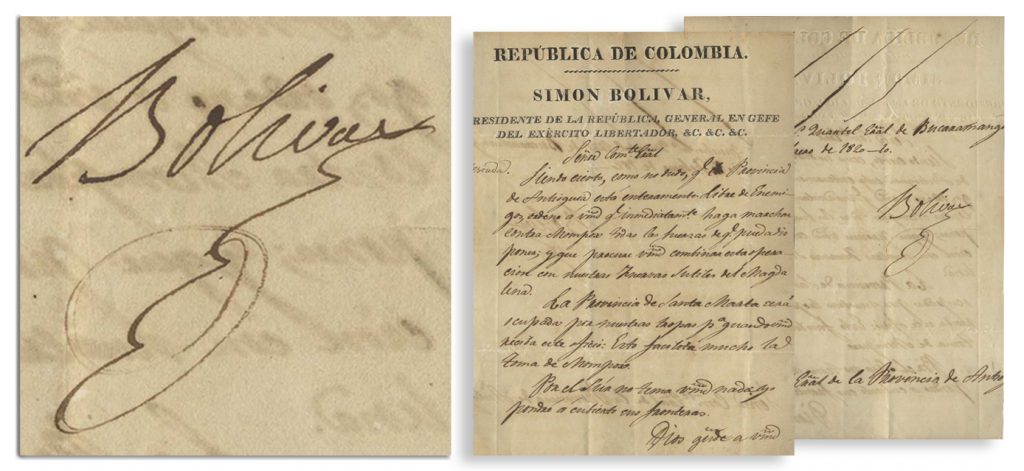 Bolivar
REPÚBLICA DE COLOMBIA.
SIMON BOLIVAR,
RESIDENTE DE LA REPÚBLICA, GENERAL EN GEFE
DEL EXÈRCITO LIBERTADOR, &C. &C. &C.
Señor Com.te Gral
Siendo cierto, como no dudo, q.e la Provincia
de Antioquia está enteramente libre de Enemi-
gos, ordeno a vmd q.e inmediatam.te haga marchar
contra Mompox todas las fuerzas de q.e pueda dis
poner; y que procure vmd combinar esta opera
cion con nuestras fuerzas sutiles del Magda
lena.
La Provincia de Santa Marta será
ocupada por nuestras tropas p.a quando vmd
reciba este oficio: Esto facilita mucho la
toma de Mompox.
Por el Sur no tema vmd nada; yo
pondré a cubierto sus fronteras.
Dios gu.de a vmd
Quartel Gral de Bucaramanga
de 1820-10.
Bolivar
Gral de la Provincia de Antio